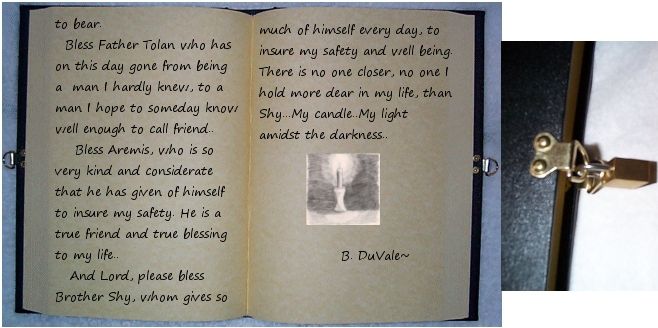 to bear.
Bless Father Tolan who has
on this day gone from being
a man I hardly knew, to a
man I hope to someday know
well enough to call friend..
Bless Aremis, who is so
very kind and considerate
that he has given of himself
to insure my safety. He is a
true friend and true blessing
to my life..
And Lord, please bless
Brother Shy, whom gives so
much of himself every day, to
insure my safety and well being.
There is no one closer, no one I
hold more dear in my life, than
Shy...My candle..My light
amidst the darkness..
B. DuVale~